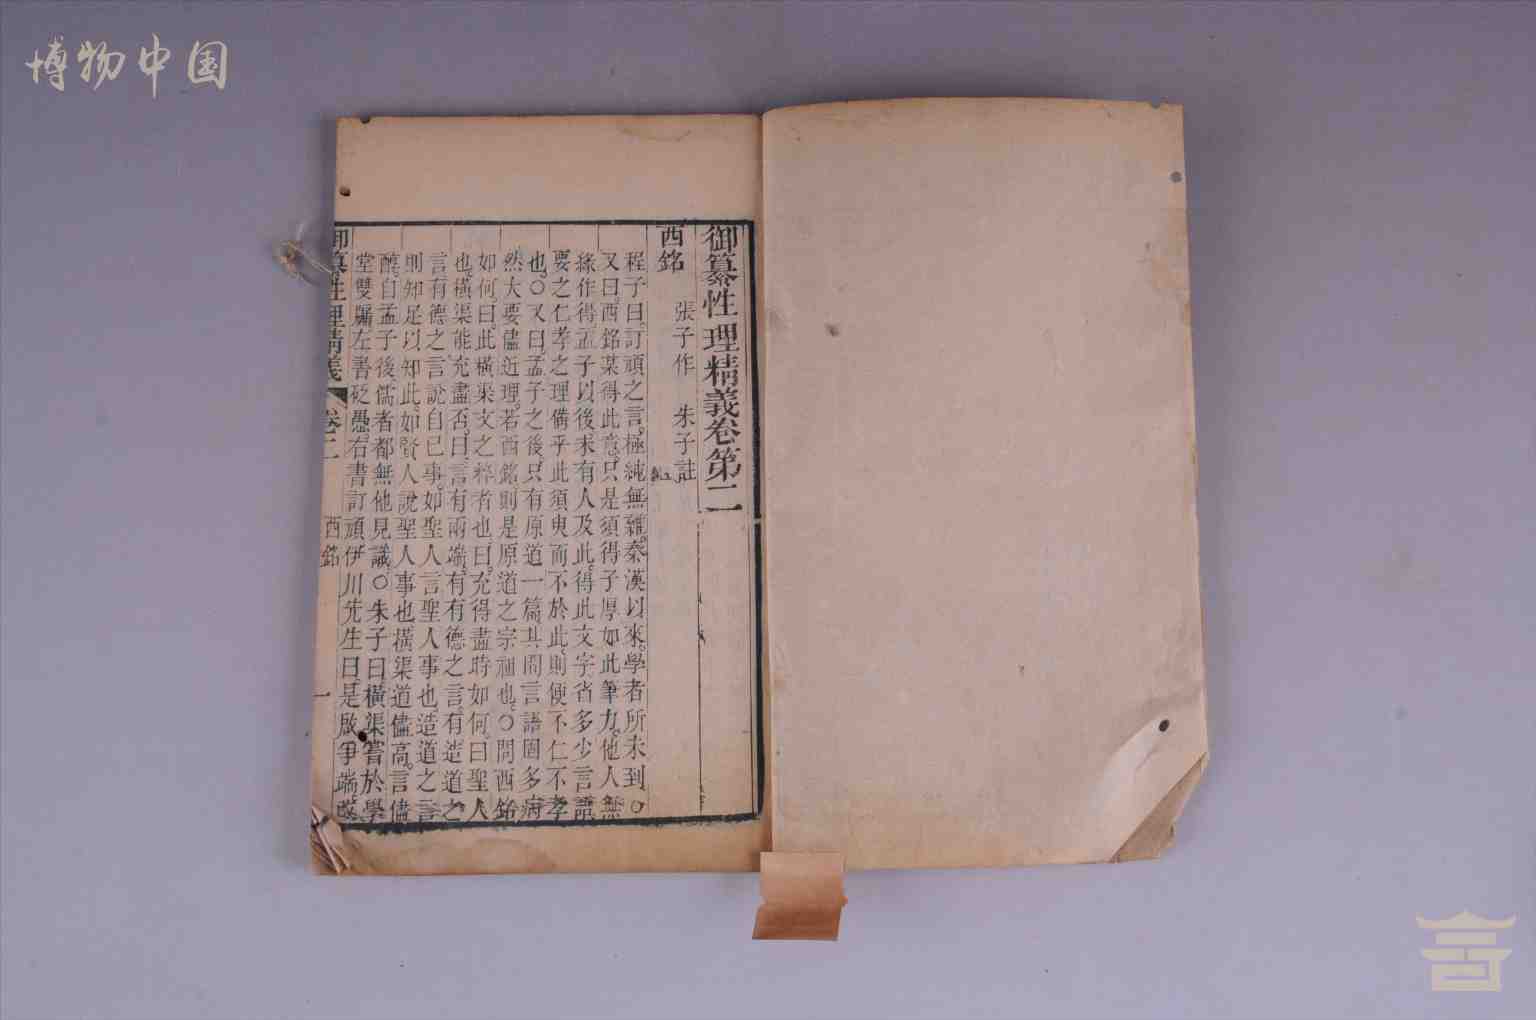 博物中国
御纂性理精義卷第二
西銘 張子作 朱子註
程子曰。訂頑之言。極純無雜。秦漢以來。學者所未到。○
又曰。西銘某得此意。只是須得子厚如此筆力。他人無
緣作得。孟子以後。未有人及此。得此文字。省多少言語。
要之仁孝之理備乎此。須臾而不於此。則便不仁不孝
也。○又曰。孟子之後。只有原道一篇。其間言語固多病。
然大要儘近理。若西銘則是原道之宗祖也。○問西銘
如何。曰。此橫渠文之粹者也。曰。充得盡時如何。曰聖人
也。橫渠能充盡否。曰。言有兩端。有有德之言。有造道之
言。有德之言說自己事。如聖人言聖人事也。造道之言
則知足以知此。如賢人說聖人事也。橫渠道儘高。言儘
醇。自孟子後。儒者都無他見識。○朱子曰。橫渠嘗於學
堂雙牖左書砭愚。右書訂頑。伊川先生曰。是啟爭端。改
御纂性理精義 卷二 西銘 一